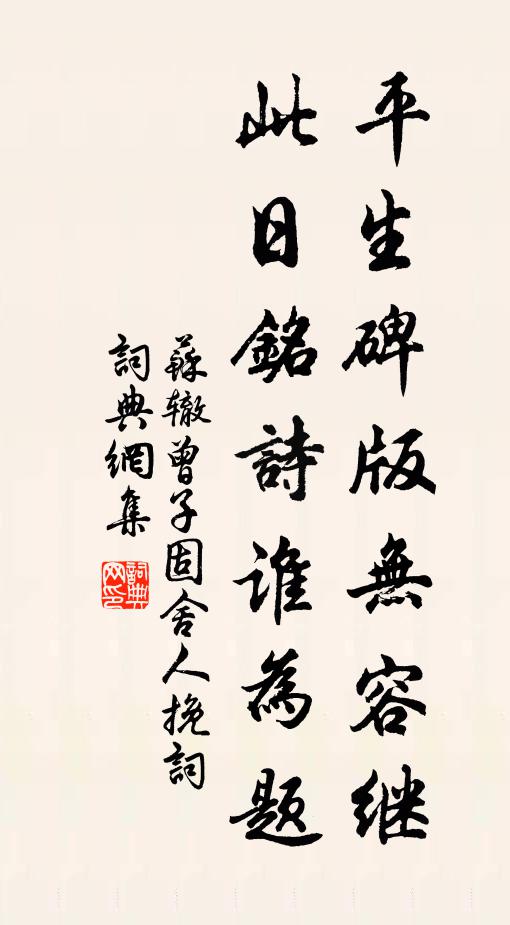 平生碑版無容继
此日銘詩谁為题
蘇辙曾子固舍人挽詞
詞典網集
詞典网印